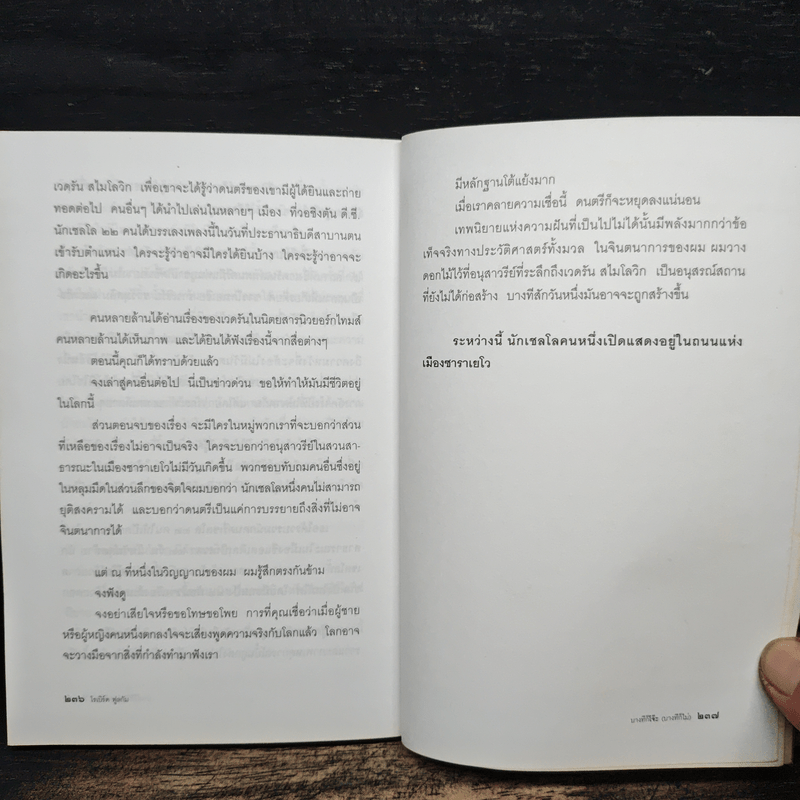 เวดรัน สไมโลวิก เพื่อเขาจะได้รู้ว่าดนตรีของเขามีผู้ได้ยินและถ่าย
ทอดต่อไป คนอื่นๆ ได้นำไปเล่นในหลายๆ เมือง ที่วอชิงตัน ดี.ซี.
นักเชลโล ๒๒ คนได้บรรเลงเพลงนี้ในวันที่ประธานาธิบดีสาบานตน
เข้ารับตำแหน่ง ใครจะรู้ว่าอาจมีใครได้ยินบ้าง ใครจะรู้ว่าอาจจะ
เกิดอะไรขึ้น
คนหลายล้านได้อ่านเรื่องของเวดรันในนิตยสารนิวยอร์กไทมส์
คนหลายล้านได้เห็นภาพ และได้ยินได้ฟังเรื่องนี้จากสื่อต่างๆ
ตอนนี้คุณก็ได้ทราบด้วยแล้ว
จงเล่าสู่คนอื่นต่อไป นี่เป็นข่าวด่วน ขอให้ทำให้มันมีชีวิตอยู่
ในโลกนี้
ส่วนตอนจบของเรื่อง จะมีใครในหมู่พวกเราที่จะบอกว่าส่วน
ที่เหลือของเรื่องไม่อาจเป็นจริง ใครจะบอกว่าอนุสาวรีย์ในสวนสา-
ธารณะในเมืองซาราเยโวไม่มีวันเกิดขึ้น พวกชอบทับถมคนอื่นซึ่งอยู่
ในหลุมมืดในส่วนลึกของจิตใจผมบอกว่า นักเชลโลหนึ่งคนไม่สามารถ
ยุติสงครามได้ และบอกว่าดนตรีเป็นแค่การบรรยายถึงสิ่งที่ไม่อาจ
จินตนาการได้
แต่ ณ ที่หนึ่งในวิญญาณของผม ผมรู้สึกตรงกันข้าม
จงฟังดู
จงอย่าเสียใจหรือขอโทษขอโพย การที่คุณเชื่อว่าเมื่อผู้ชาย
หรือผู้หญิงคนหนึ่งตกลงใจจะเสี่ยงพูดความจริงกับโลกแล้ว โลกอาจ
จะวางมือจากสิ่งที่กำลังทำมาฟังเรา
๒๓๖ โรเบิร์ต ฟูลกัม
มีหลักฐานโต้แย้งมาก
เมื่อเราคลายความเชื่อนี้ ดนตรีก็จะหยุดลงแน่นอน
เทพนิยายแห่งความฝันที่เป็นไปไม่ได้นั้นมีพลังมากกว่าข้อ
เท็จจริงทางประวัติศาสตร์ทั้งมวล ในจินตนาการของผม ผมวาง
ดอกไม้ไว้ที่อนุสาวรีย์ที่ระลึกถึงเวดรัน สไมโลวิก เป็นอนุสรณ์สถาน
ที่ยังไม่ได้ก่อสร้าง บางทีสักวันหนึ่งมันอาจจะถูกสร้างขึ้น
ระหว่างนี้ นักเชลโลคนหนึ่งเปิดแสดงอยู่ในถนนแห่ง
เมืองซาราเยโว
บางทีก็ใช่ (บางทีก็ไม่) ๒๓๗